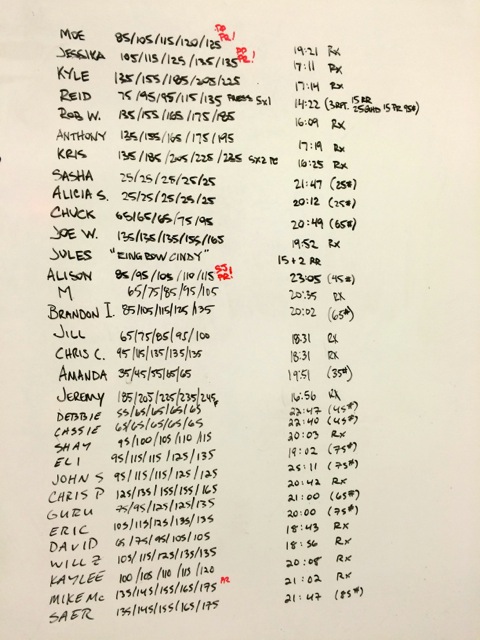 MOE 85/105/115/120/125 PR! 19:21 RX
JESSIKA 105/115/125/135/135 PR! 17:11 RX
KYLE 135/155/185/205/225 17:14 RX
REID 75/95/95/115/135 PRESS 5x1 14:22 (3RFT. 15 RR 25GHD 15 PR 95#)
ROB W. 135/155/165/175/185 16:09 RX
ANTHONY 135/155/165/175/195 17:19 RX
KRIS 135/185/205/225/235 5x2 16:25 RX
SASHA 25/25/25/25/25 21:47 (25#)
ALICIA S. 25/25/25/25/25 20:12 (25#)
CHUCK 65/65/65/75/95 20:49 (65#)
JOE W. 135/135/135/155/165 19:52 RX
JULES "RING ROW CINDY" 15+2 RR
ALISON 85/95/105/110/115 PR! 23:05 (45#)
M 65/75/85/95/105 20:35 RX
BRANDON I. 85/105/115/125/135 20:02 (65#)
JILL 65/75/85/95/100 18:31 RX
CHRIS C. 95/115/135/135/135 18:31 RX
AMANDA 35/45/55/65/65 19:51 (35#)
JEREMY 185/205/225/235/245 16:56 RX
DEBBIE 55/65/65/65/65 22:47 (45#)
CASSIE 65/65/65/65/65 22:40 (45#)
SHAY 95/100/105/110/115 20:03 RX
ELI 95/115/115/125/135 19:02 (75#)
JOHN S 95/115/115/125/125 25:11 (75#)
CHRIS P 125/135/155/155/165 20:42 RX
GURU 75/95/125/125/135 21:00 (65#)
ERIC 105/115/125/135/135 20:00 (75#)
DAVID 65/75/95/105/105 18:43 RX
WILL Z 105/115/125/135/135 18:56 RX
KAYLEE 100/105/110/115/120 20:08 RX
MIKE MC 135/145/155/165/175 PR 21:02 RX
SAER 135/145/155/165/175 21:47 (85#)